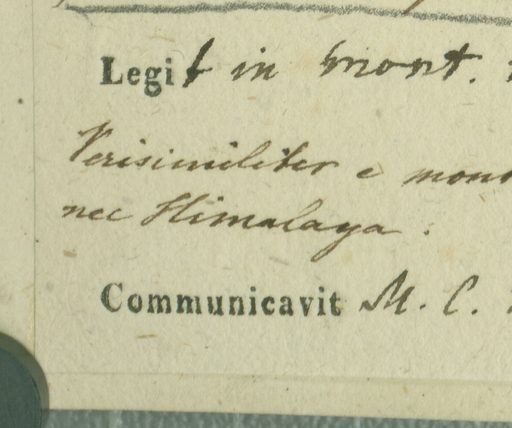 Legit in mont.
Verisimiliter e mont
nec Himalaya.
Communicavit M. C.